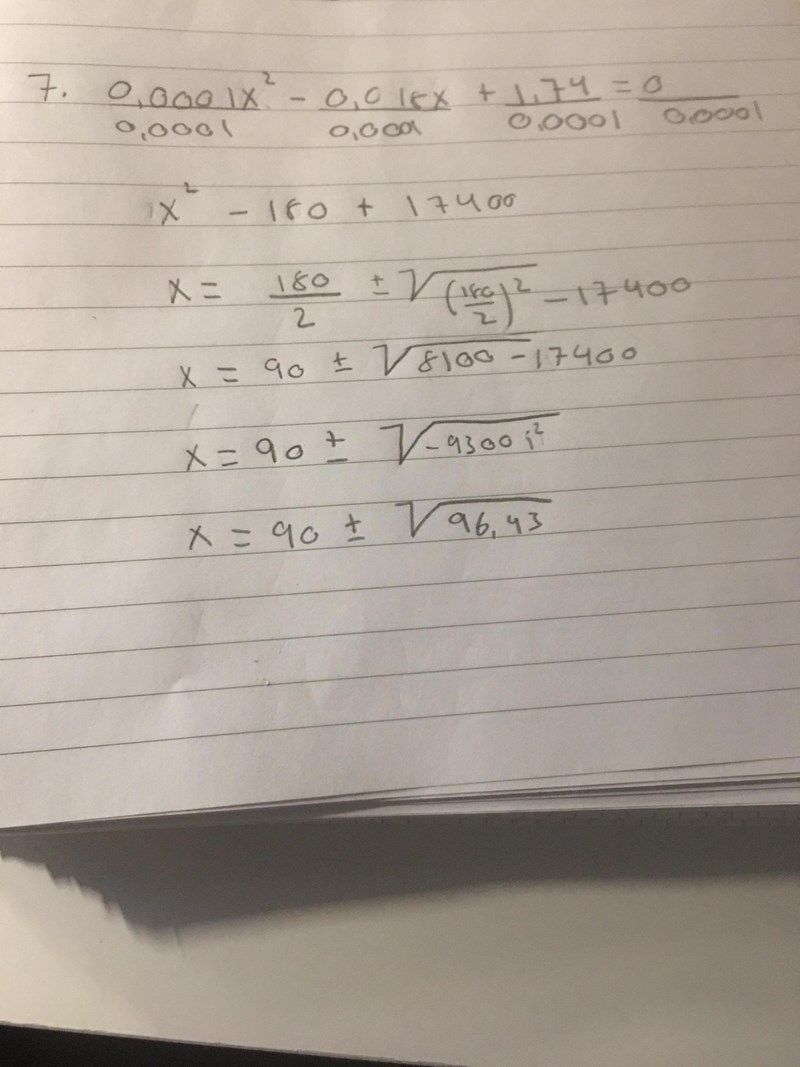 7. 0,0001x² - 0,018x + 1,74 = 0
0,0001 0,0001 0,0001 0,0001
x² - 180 + 17400
x = 180/2 ± √(180/2)² - 17400
x = 90 ± √8100 - 17400
x = 90 ± √-9300 i²
x = 90 ± √96,43